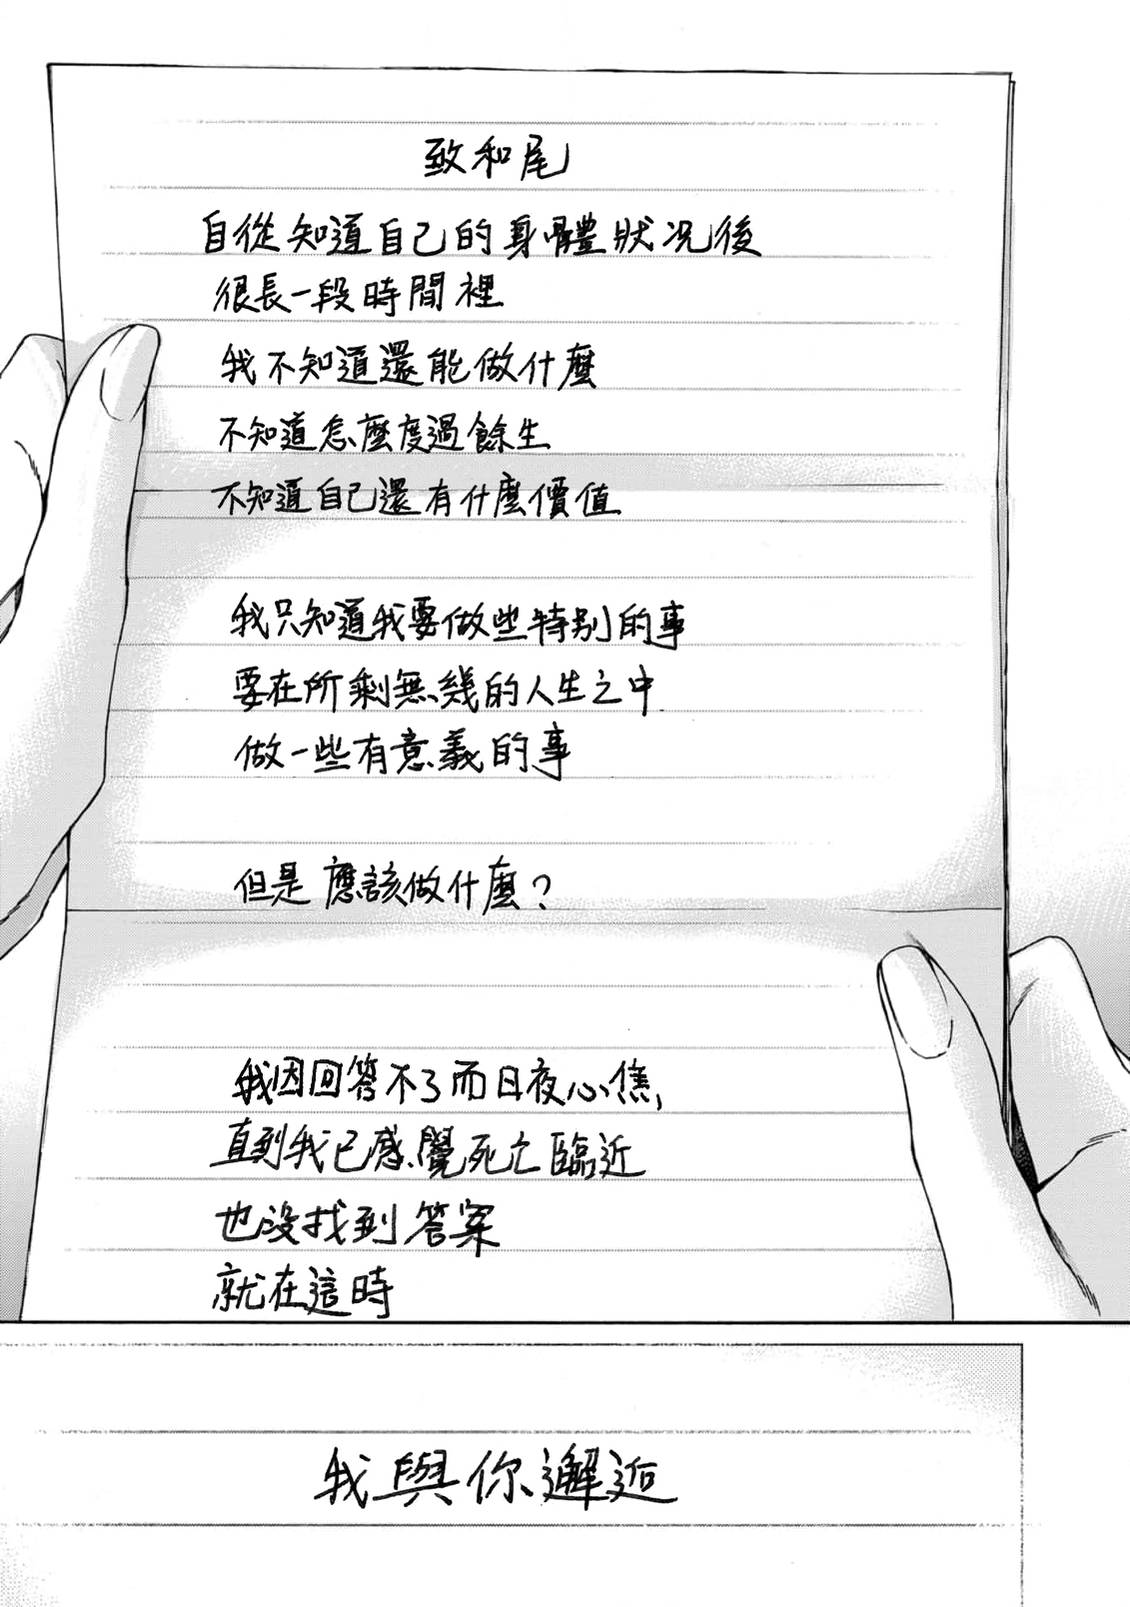 致和尾
自從知道自己的身體狀況後
很長一段時間裡
我不知道還能做什麼
不知道怎麼度過餘生
不知道自己還有什麼價值
我只知道我要做些特別的事
要在所剩無幾的人生之中
做一些有意義的事
但是應該做什麼？
我因回答不了而日夜心焦，
直到我已感覺死亡臨近
也沒找到答案
就在這時
我與你邂逅